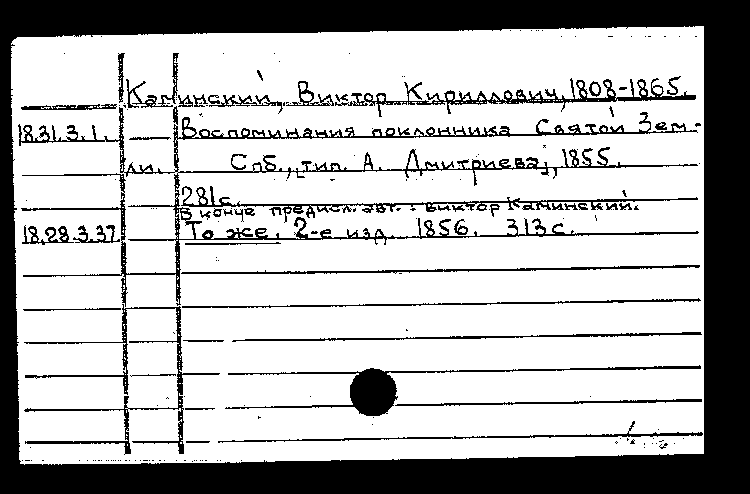 Каминский, Виктор Кириллович, 1808-1865.
18.31.3.1. Воспоминания поклонника Святой Зем-
ли. Спб., [тип. А. Дмитриева], 1855.
281 с.
В конце предисл. авт.: Виктор Каминский.
18.28.3.37. То же. 2-е изд. 1856. 313 с.